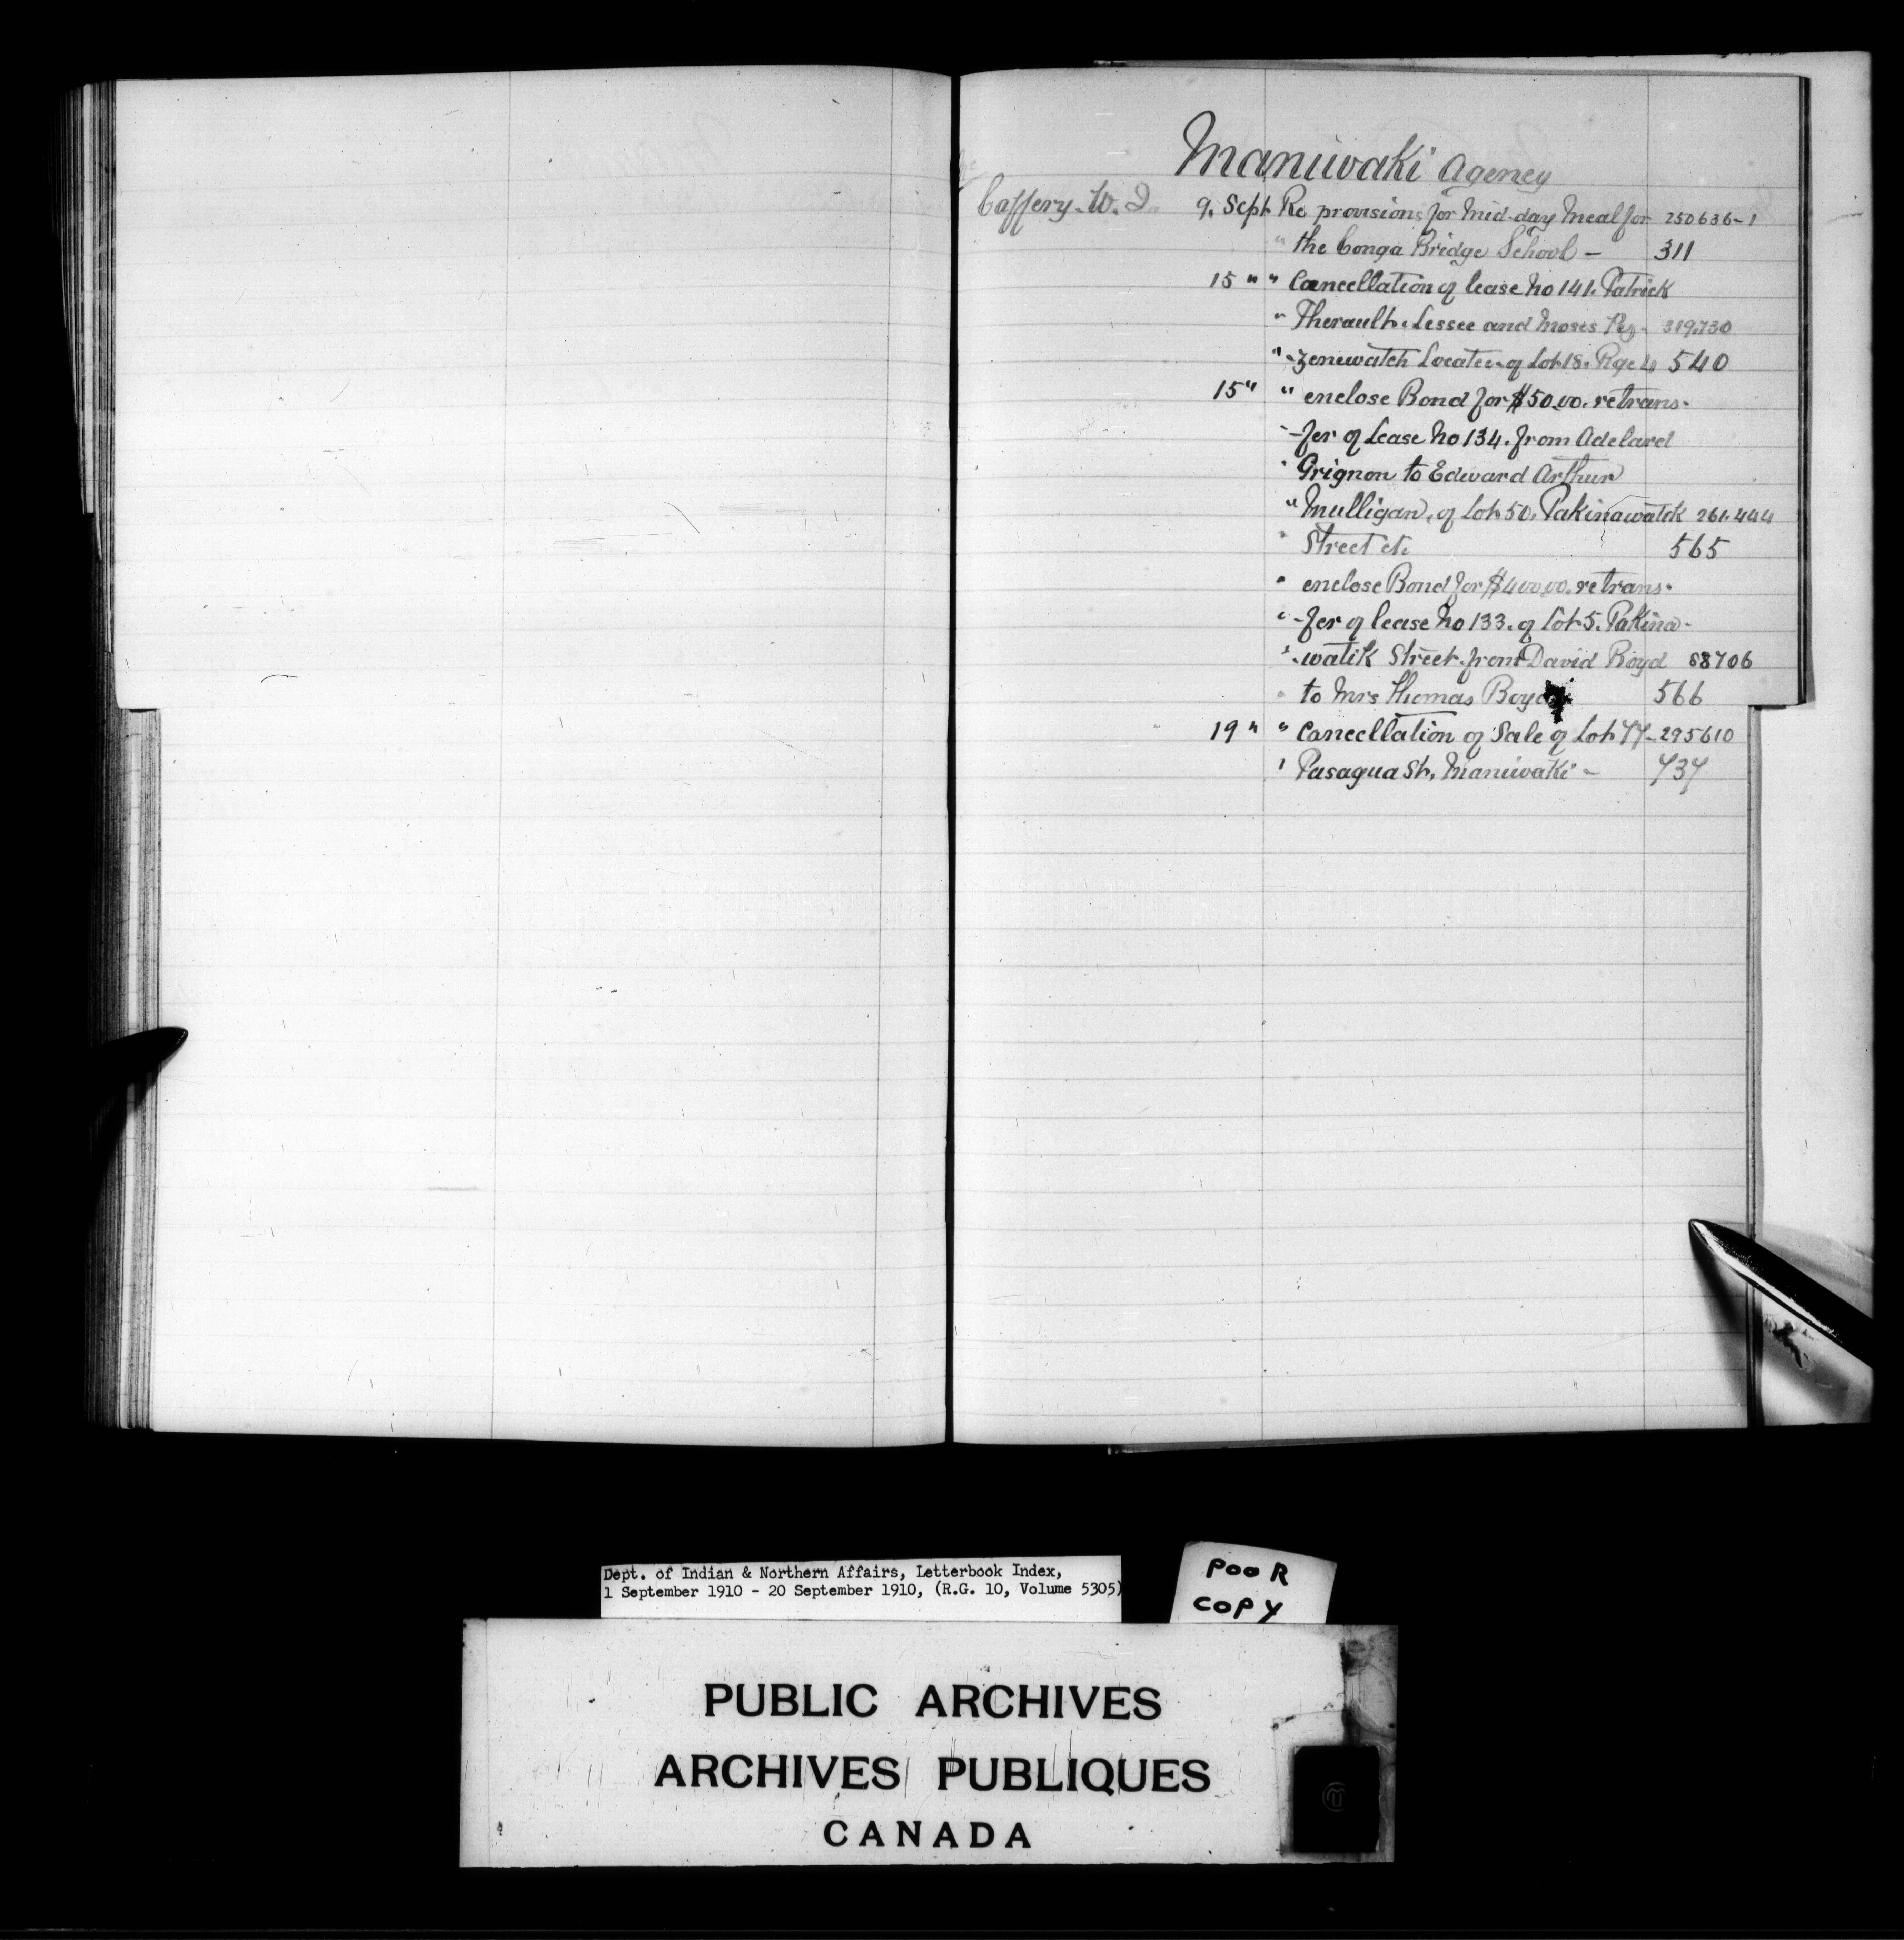 Maniwaki Agency
Caffery. W. J. 9. Sept Re provisions for Mid-day Meal for 250636-1
" the Conga Bridge School - 311
15 " " Cancellation of lease No 141. Patrick
" Therault. Lessee and Moses Pez- 319,730
" -zenewatch Locatee of Lot 18. Rge 4 540
15 " " enclose Bond for $50.00. re trans-
" -fer of Lease No 134. from Adelard
" Grignon to Edward Arthur
" Mulligan, of Lot 50. Pakinawatik 261.444
" Street etc 565
" enclose Bond for $400.00. re trans-
" -fer of lease No 133. of Lot 5. Pakina-
" -watik Street. from David Boyd 58706
" to Mrs Thomas Boyd 566
19 " " Cancellation of Sale of Lot 77- 295610
" Pasagua St, Maniwaki - 737
Dept. of Indian & Northern Affairs, Letterbook Index,
1 September 1910 - 20 September 1910, (R.G. 10, Volume 5305)
POOR
COPY
PUBLIC ARCHIVES
ARCHIVES PUBLIQUES
CANADA